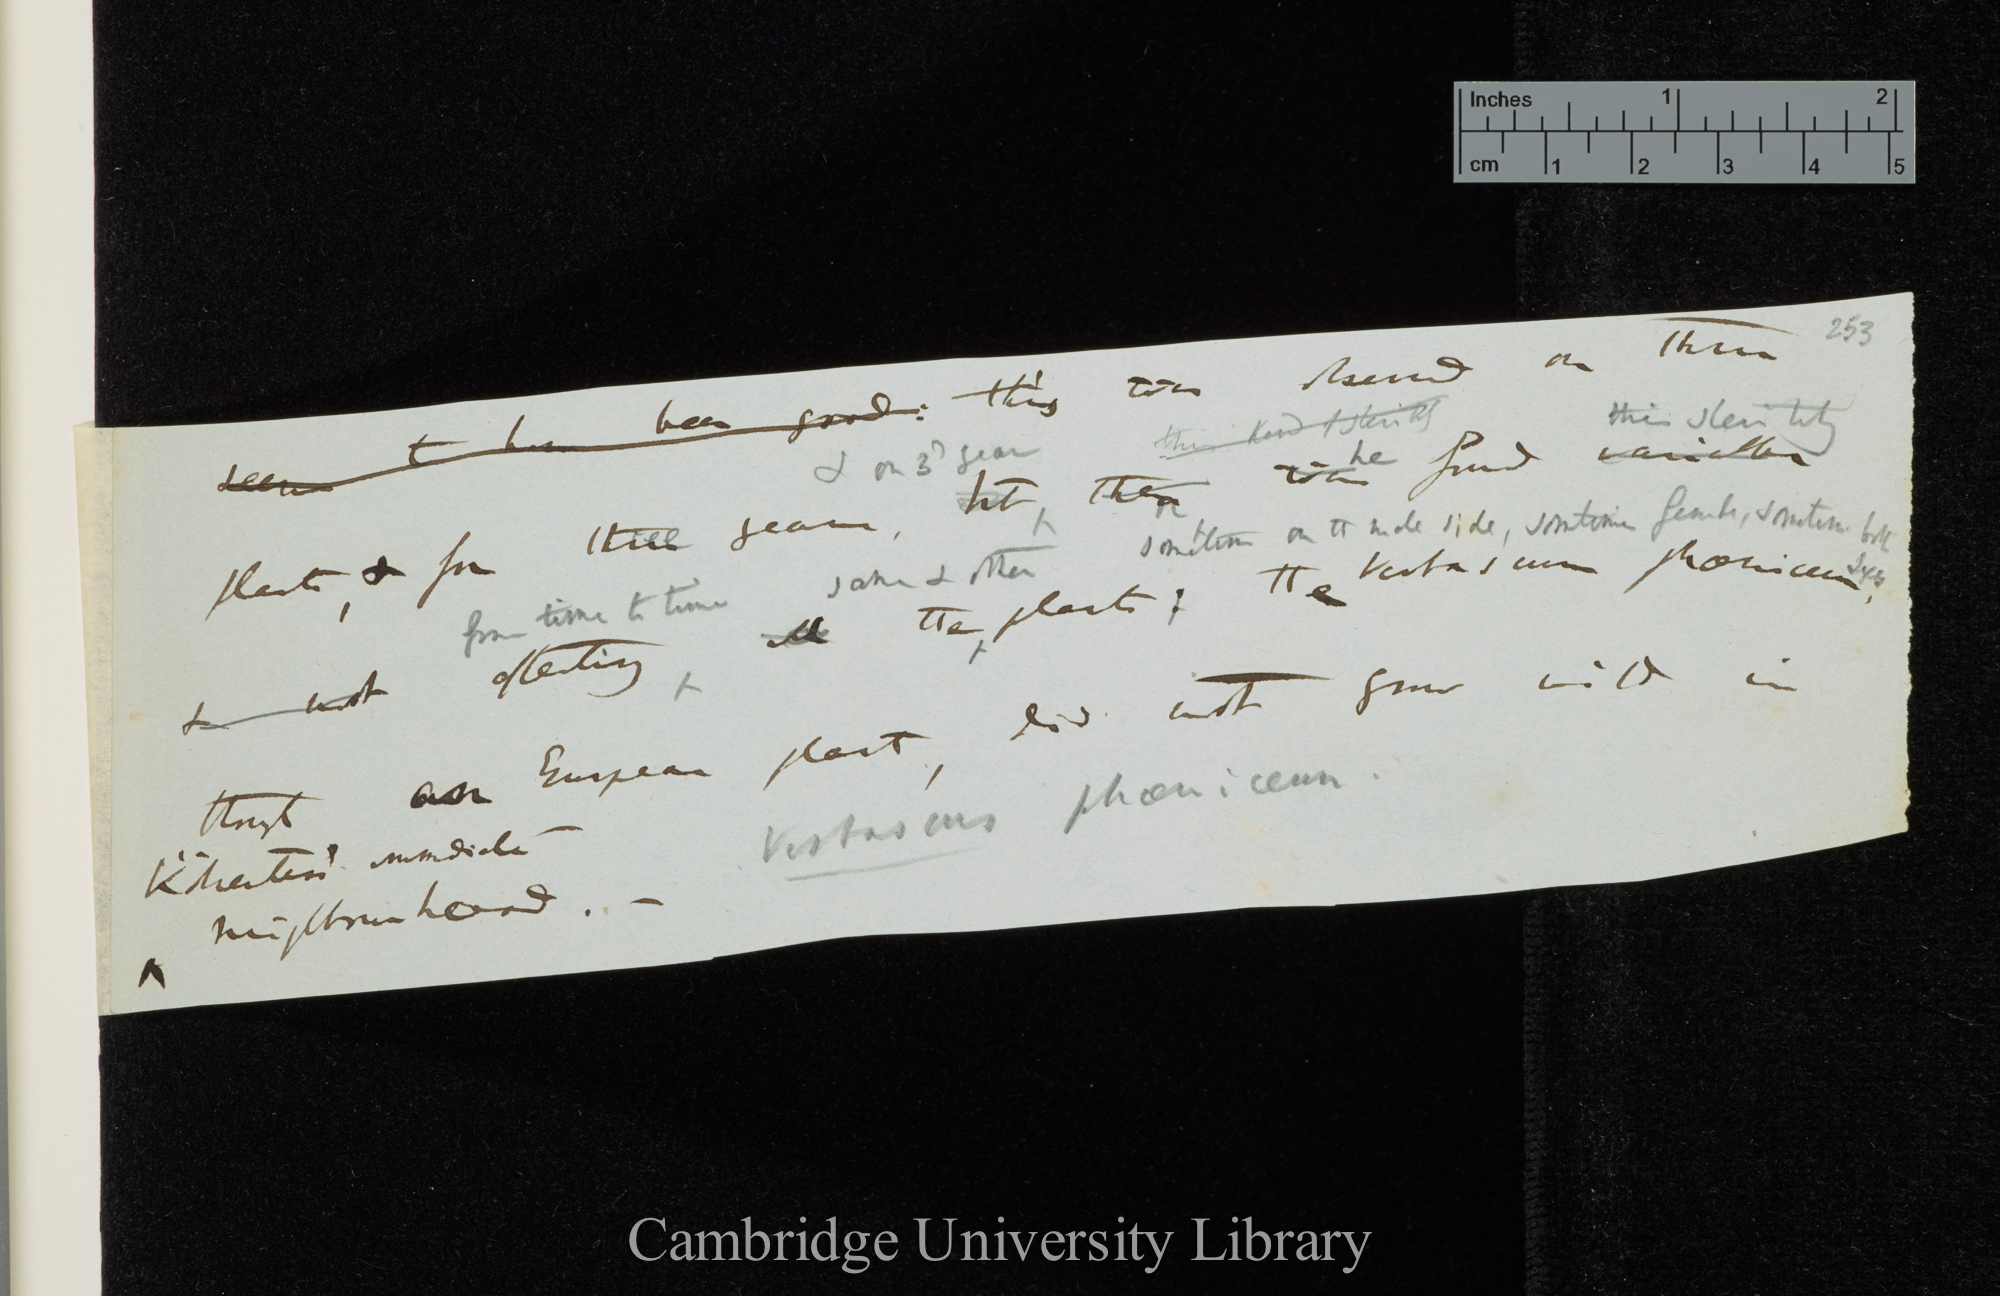 Inches 1 2
cm 1 2 3 4 5
253
seems to have been good: this was observed on three
& on 3d year this kind of sterility this sterility
plants, & for three years, but then was he found variable
from time to time same & other sometimes on the male side, sometimes female, sometimes both
sexes
& not affecting all the plants; the Verbascum phœniceum,
though an European plant, did not grow wild in
Kölreuter's immediate
neighbourhood. —
Verbascum phœniceum.
Cambridge University Library